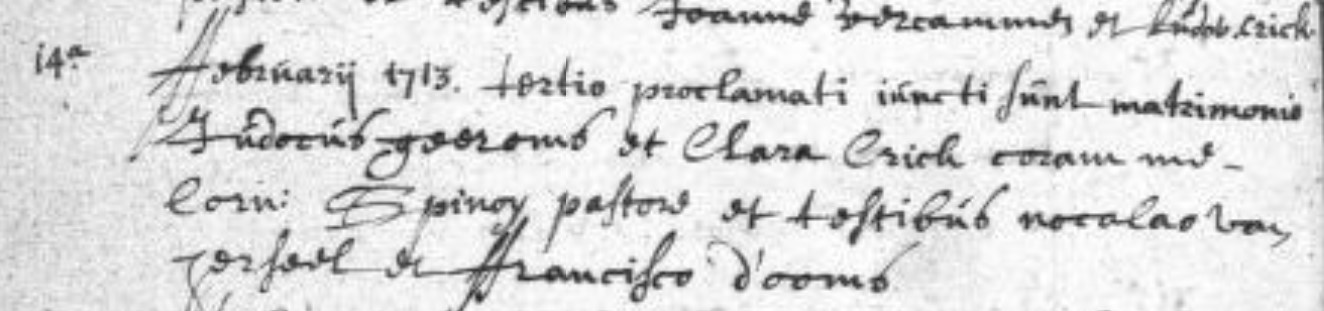 et testibus Joanne Vercammen et Ludov. Crick
14a Februarij 1713. tertio proclamati iuncti sunt matrimonio
Judocus geeroms et Clara Crick coram me
Corn: Spinoy pastore et testibus nocolao van
et Francisco d'ooms